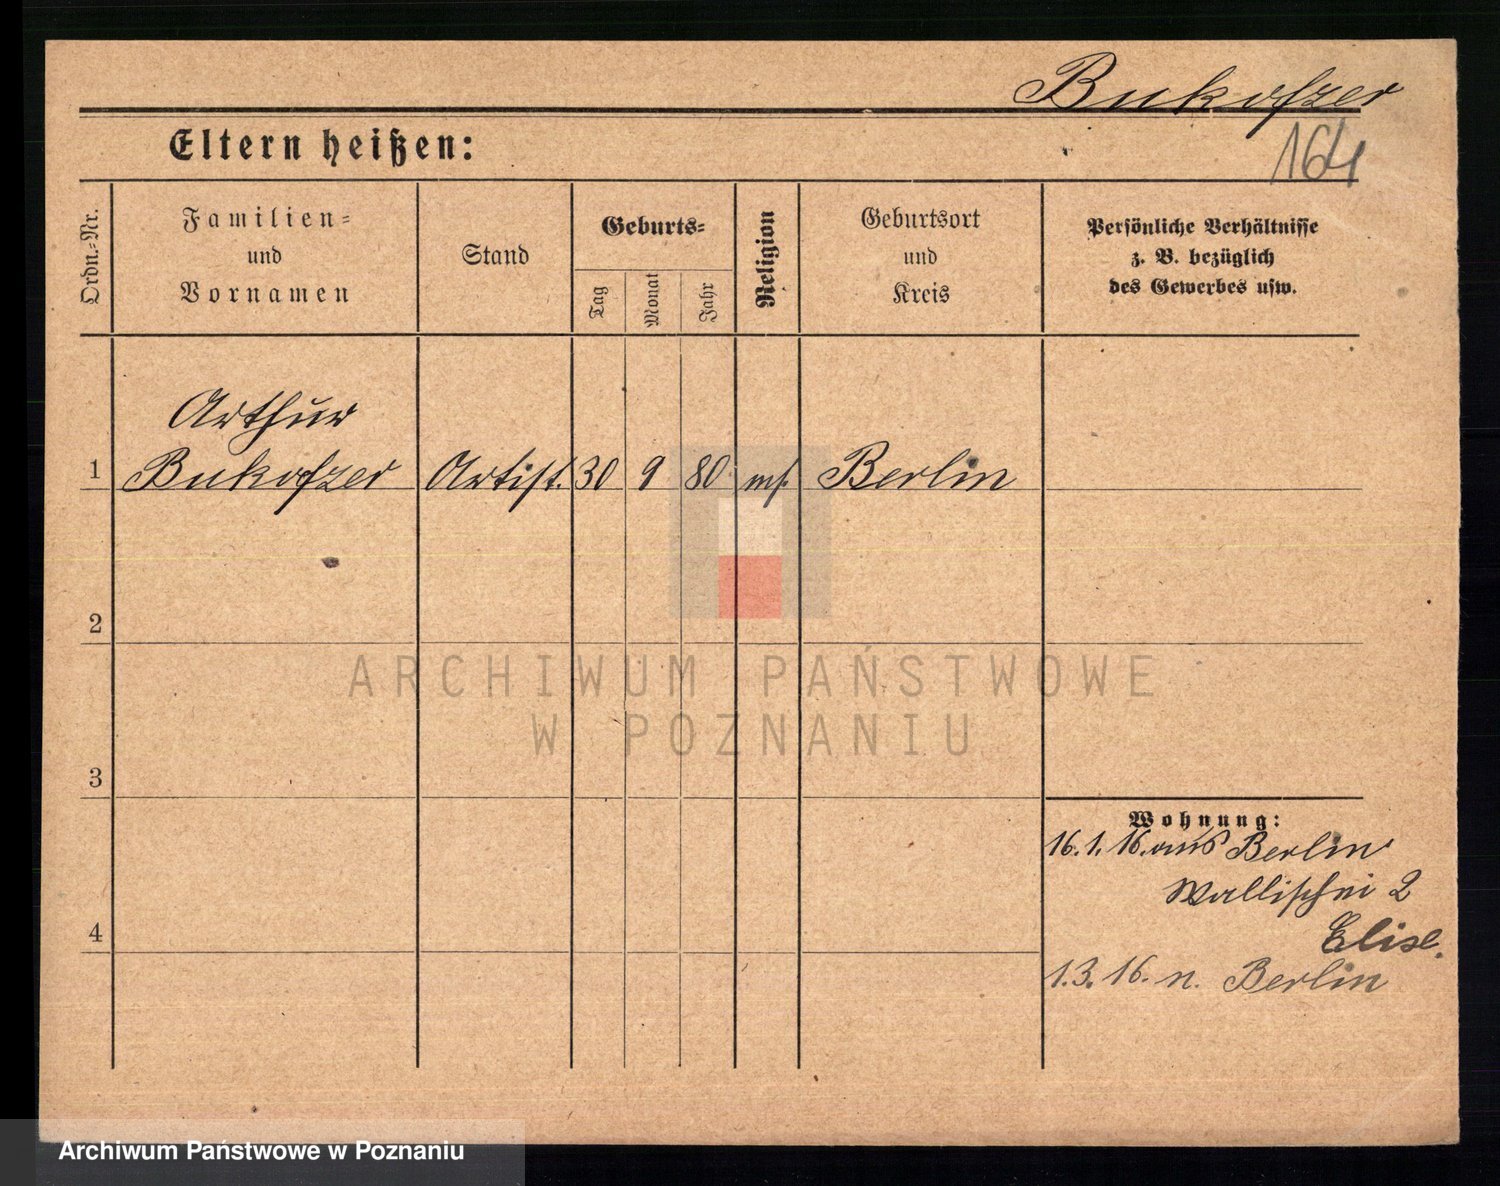 Bukofzer
Eltern heißen:
164
Ordn.=Nr.
Familien=
und
Vornamen
Stand
Geburts=
Tag
Monat
Jahr
Religion
Geburtsort
und
Kreis
Persönliche Verhältnisse
z. B. bezüglich
des Gewerbes usw.
Arthur
1 Bukofzer Artist. 30 9 80 ms. Berlin
2
ARCHIWUM PAŃSTWOWE
W POZNANIU
3
Wohnung:
16.1.16. aus Berlin
Wallischei 2
4
Elise.
1.3.16. n. Berlin
Archiwum Państwowe w Poznaniu